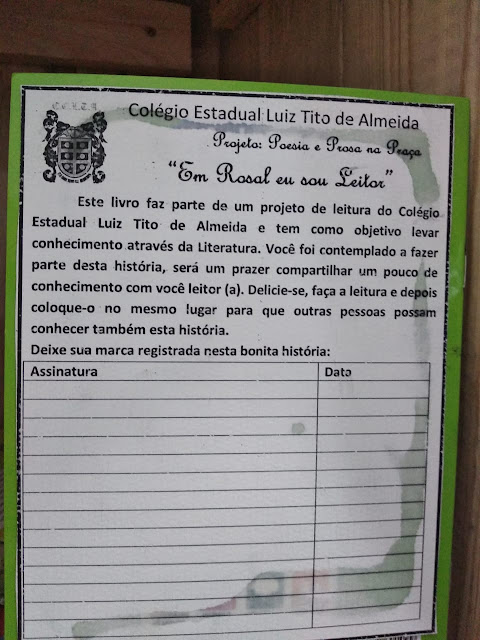 C.E.L.T.A
Colégio Estadual Luiz Tito de Almeida
Projeto: Poesia e Prosa na Praça
“Em Rosal eu sou Leitor”
Este livro faz parte de um projeto de leitura do Colégio
Estadual Luiz Tito de Almeida e tem como objetivo levar
conhecimento através da Literatura. Você foi contemplado a fazer
parte desta história, será um prazer compartilhar um pouco de
conhecimento com você leitor (a). Delicie-se, faça a leitura e depois
coloque-o no mesmo lugar para que outras pessoas possam
conhecer também esta história.
Deixe sua marca registrada nesta bonita história:
Assinatura Data